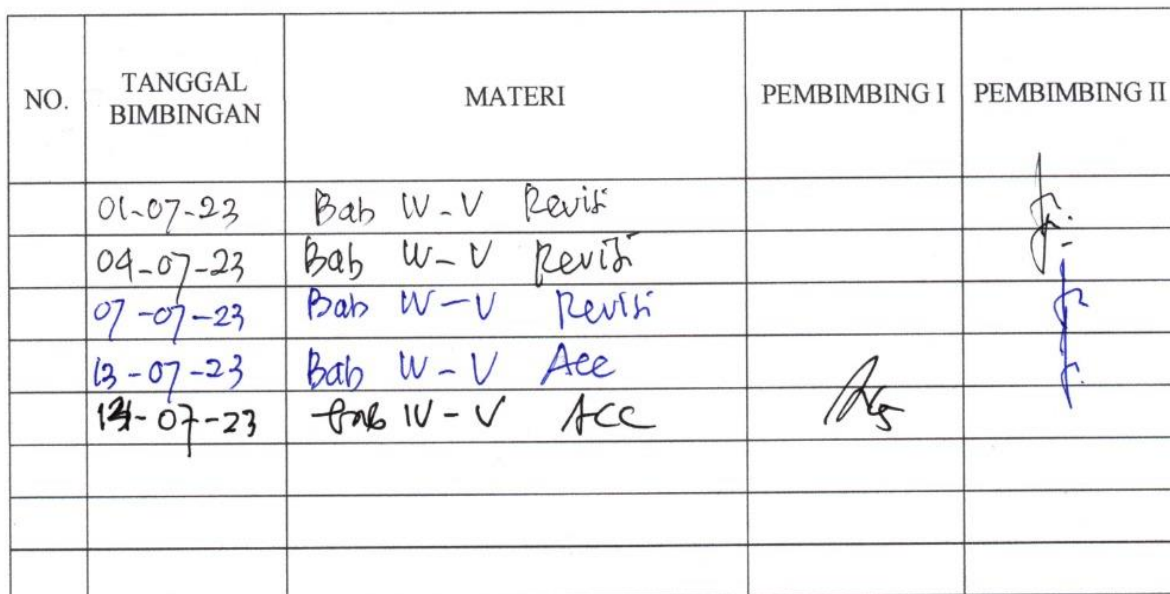 NO. TANGGAL BIMBINGAN MATERI PEMBIMBING I PEMBIMBING II
01-07-23 Bab IV-V Revisi
04-07-23 Bab IV-V Revisi
07-07-23 Bab IV-V Revisi
13-07-23 Bab IV-V Acc
-07-23 Bab IV-V ACC